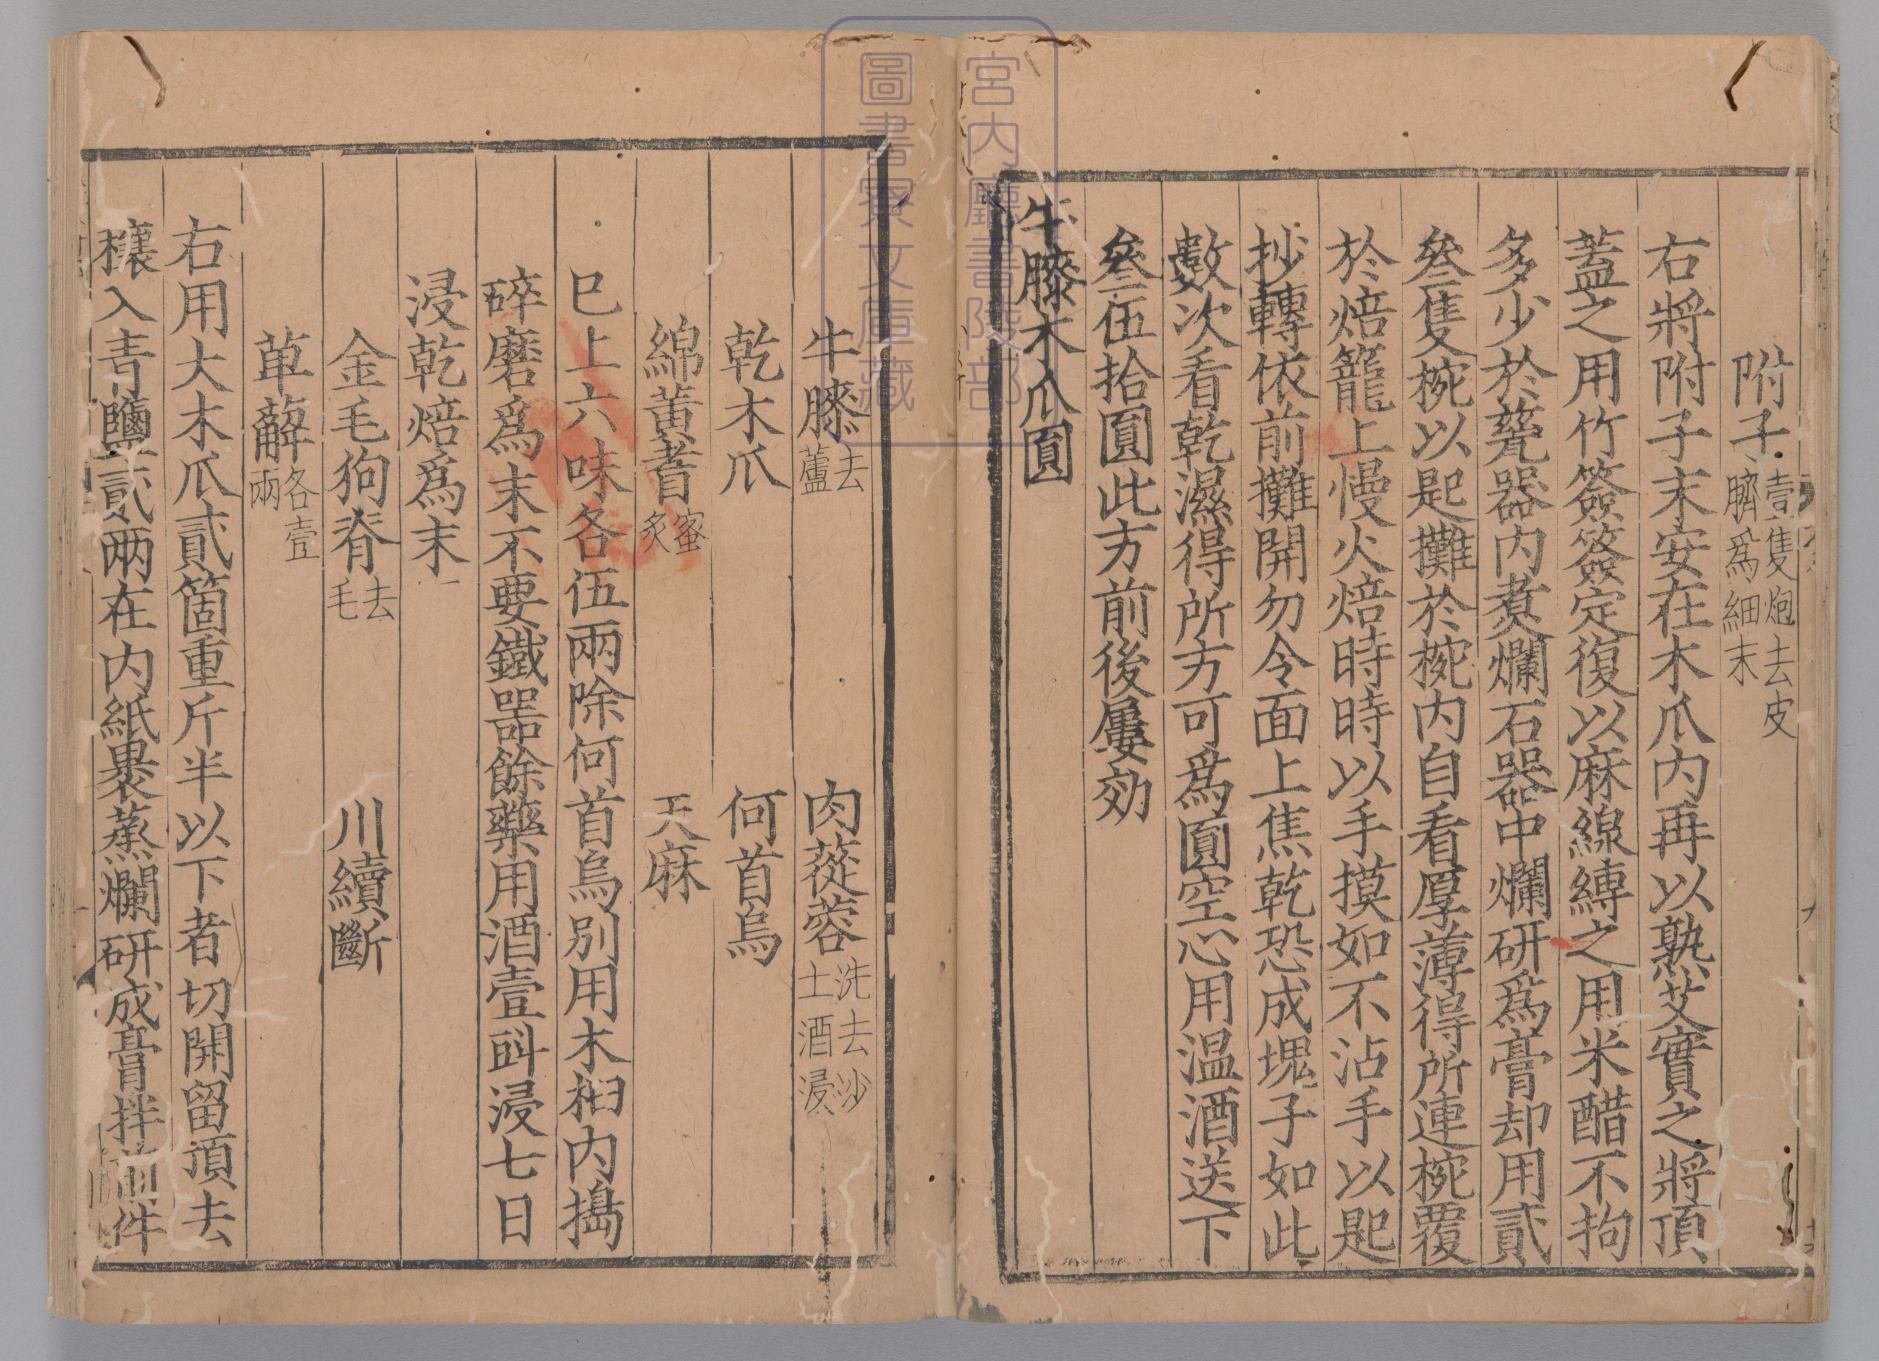 附子壹隻炮去皮臍爲細末
右將附子末安在木瓜內再以熟艾實之將頂
蓋之用竹簽簽定復以麻線縛之用米醋不拘
多少於甆器內煮爛石器中爛研爲膏却用貳
叄隻椀以匙攤於椀內自看厚薄得所連椀覆
於焙籠上慢火焙時時以手摸如不沾手以匙
抄轉依前攤開勿令面上焦乾恐成塊子如此
數次看乾濕得所方可爲圓空心用温酒送下
叄伍拾圓此方前後屢効
牛膝木瓜圓
牛膝去蘆 肉蓯蓉洗去沙土酒浸
乾木瓜 何首烏
綿黃耆蜜炙 天麻
已上六味各伍兩除何首烏別用木椙內搗
碎磨爲末不要鐵器餘藥用酒壹㪷浸七日
浸乾焙爲末
金毛狗脊去毛 川續斷
萆薢各壹兩
右用大木瓜貳箇重斤半以下者切開留頂去
穰入青鹽貳兩在內紙裹蒸爛研成膏拌前件
宮內廳書陵部
圖書寮文庫藏